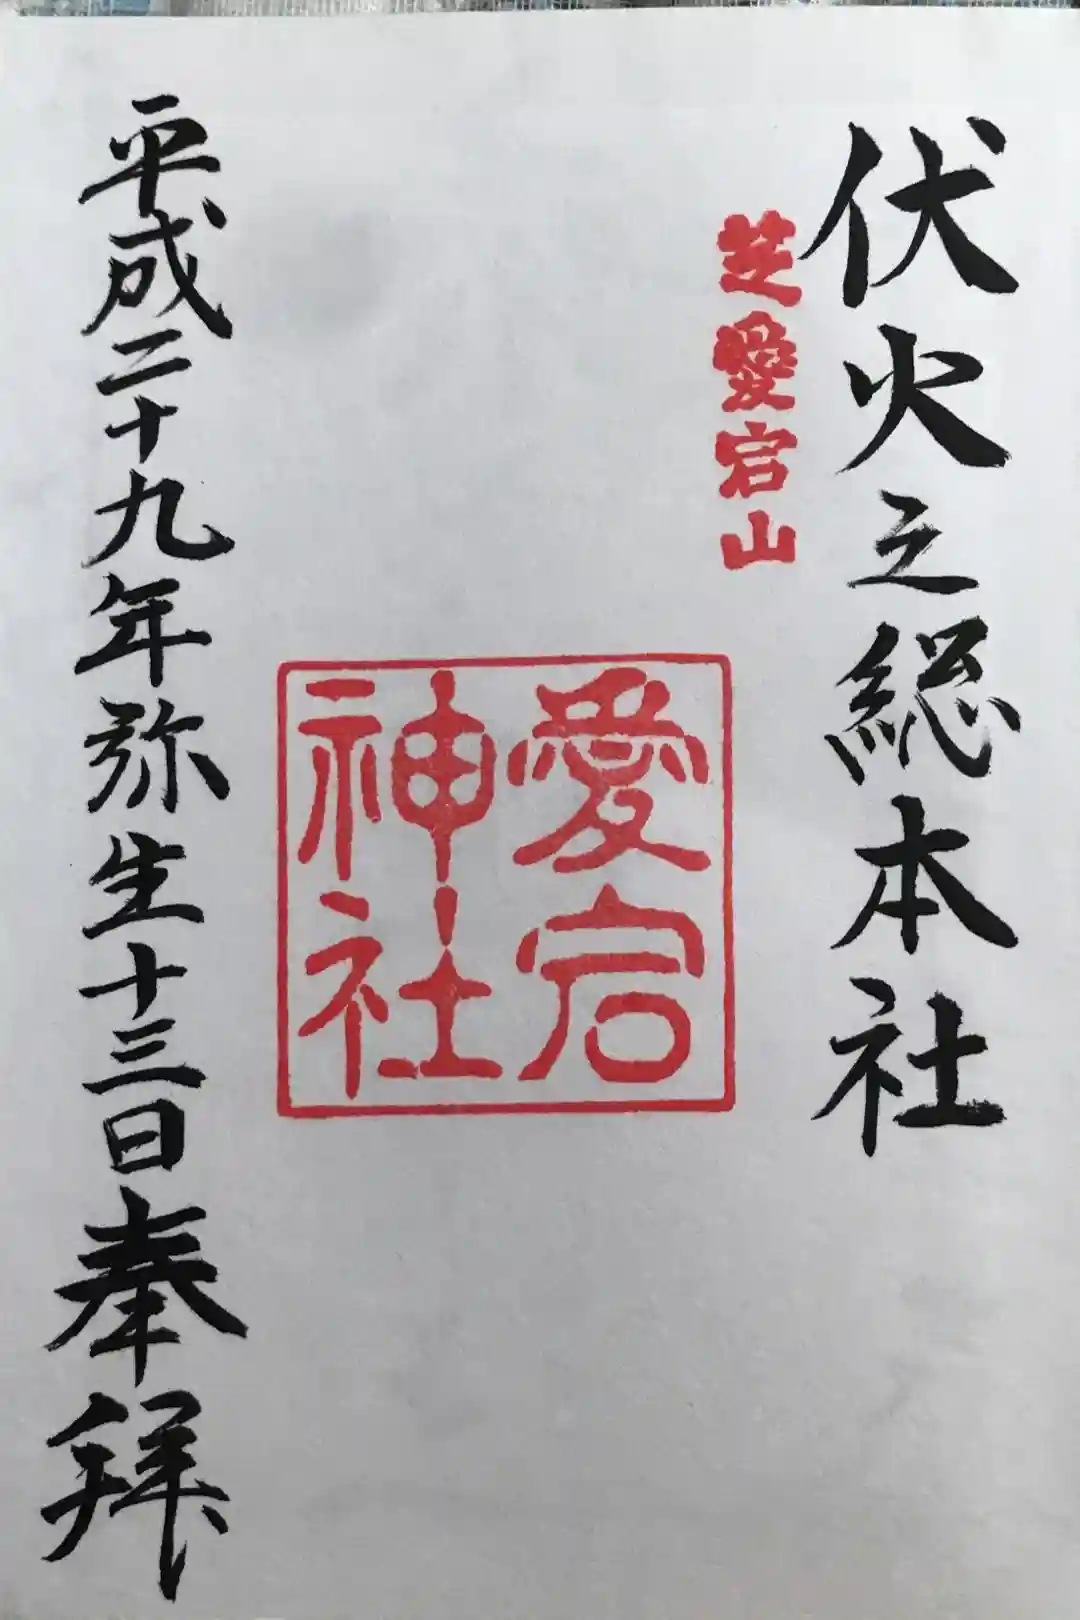 伏火之総本社
芝愛宕山
愛宕
神社
平成二十九年弥生十三日奉拜